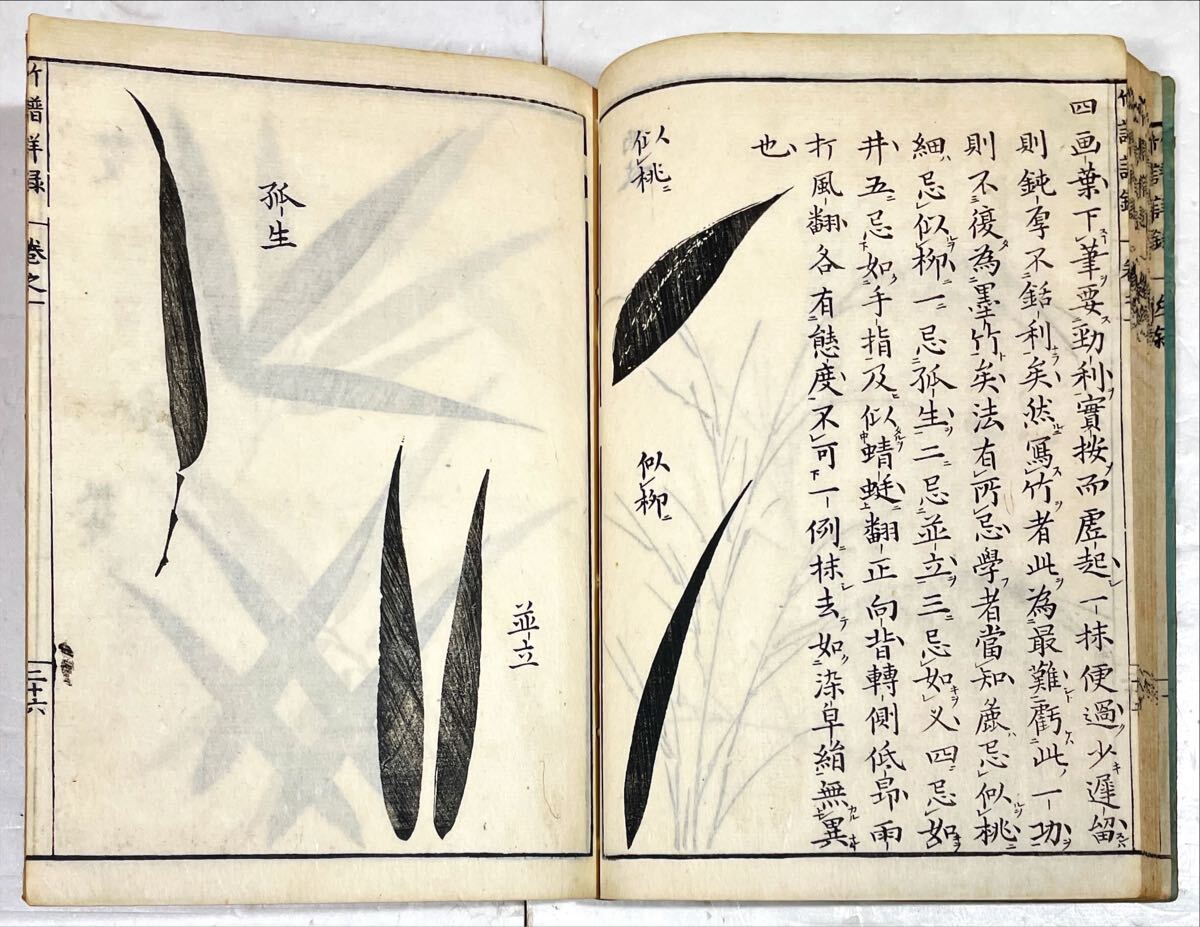 四画葉下筆要勁利實按而虚起一抹便過少遲留
則鈍厚不銛利矣然寫竹者此為最難虧此一功
則不復為墨竹矣法有所忌學者當知麄忌似桃
細忌似柳一忌孤生二忌並立三忌如乂四忌如
井五忌如手指及似蜻蜓翻正向背轉側低昂雨
打風翻各有態度不可一例抹去如染皁絹無異
也
似桃
似柳
並立
孤生
竹譜詳録
巻之一
二十六